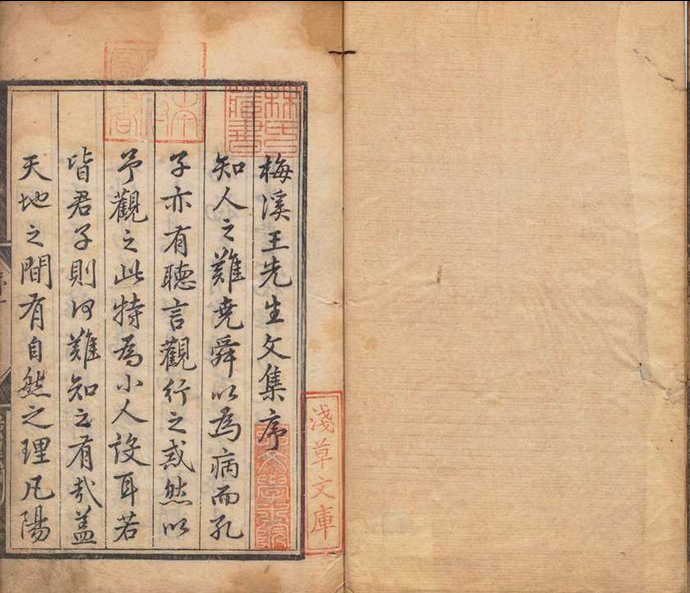 梅溪王先生文集序
知人之難堯舜以為病而孔
子亦有聽言觀行之戒然以
予觀之此特為小人設耳若
皆君子則何難知之有哉蓋
天地之間有自然之理凡陽
淺草文庫
林氏藏書